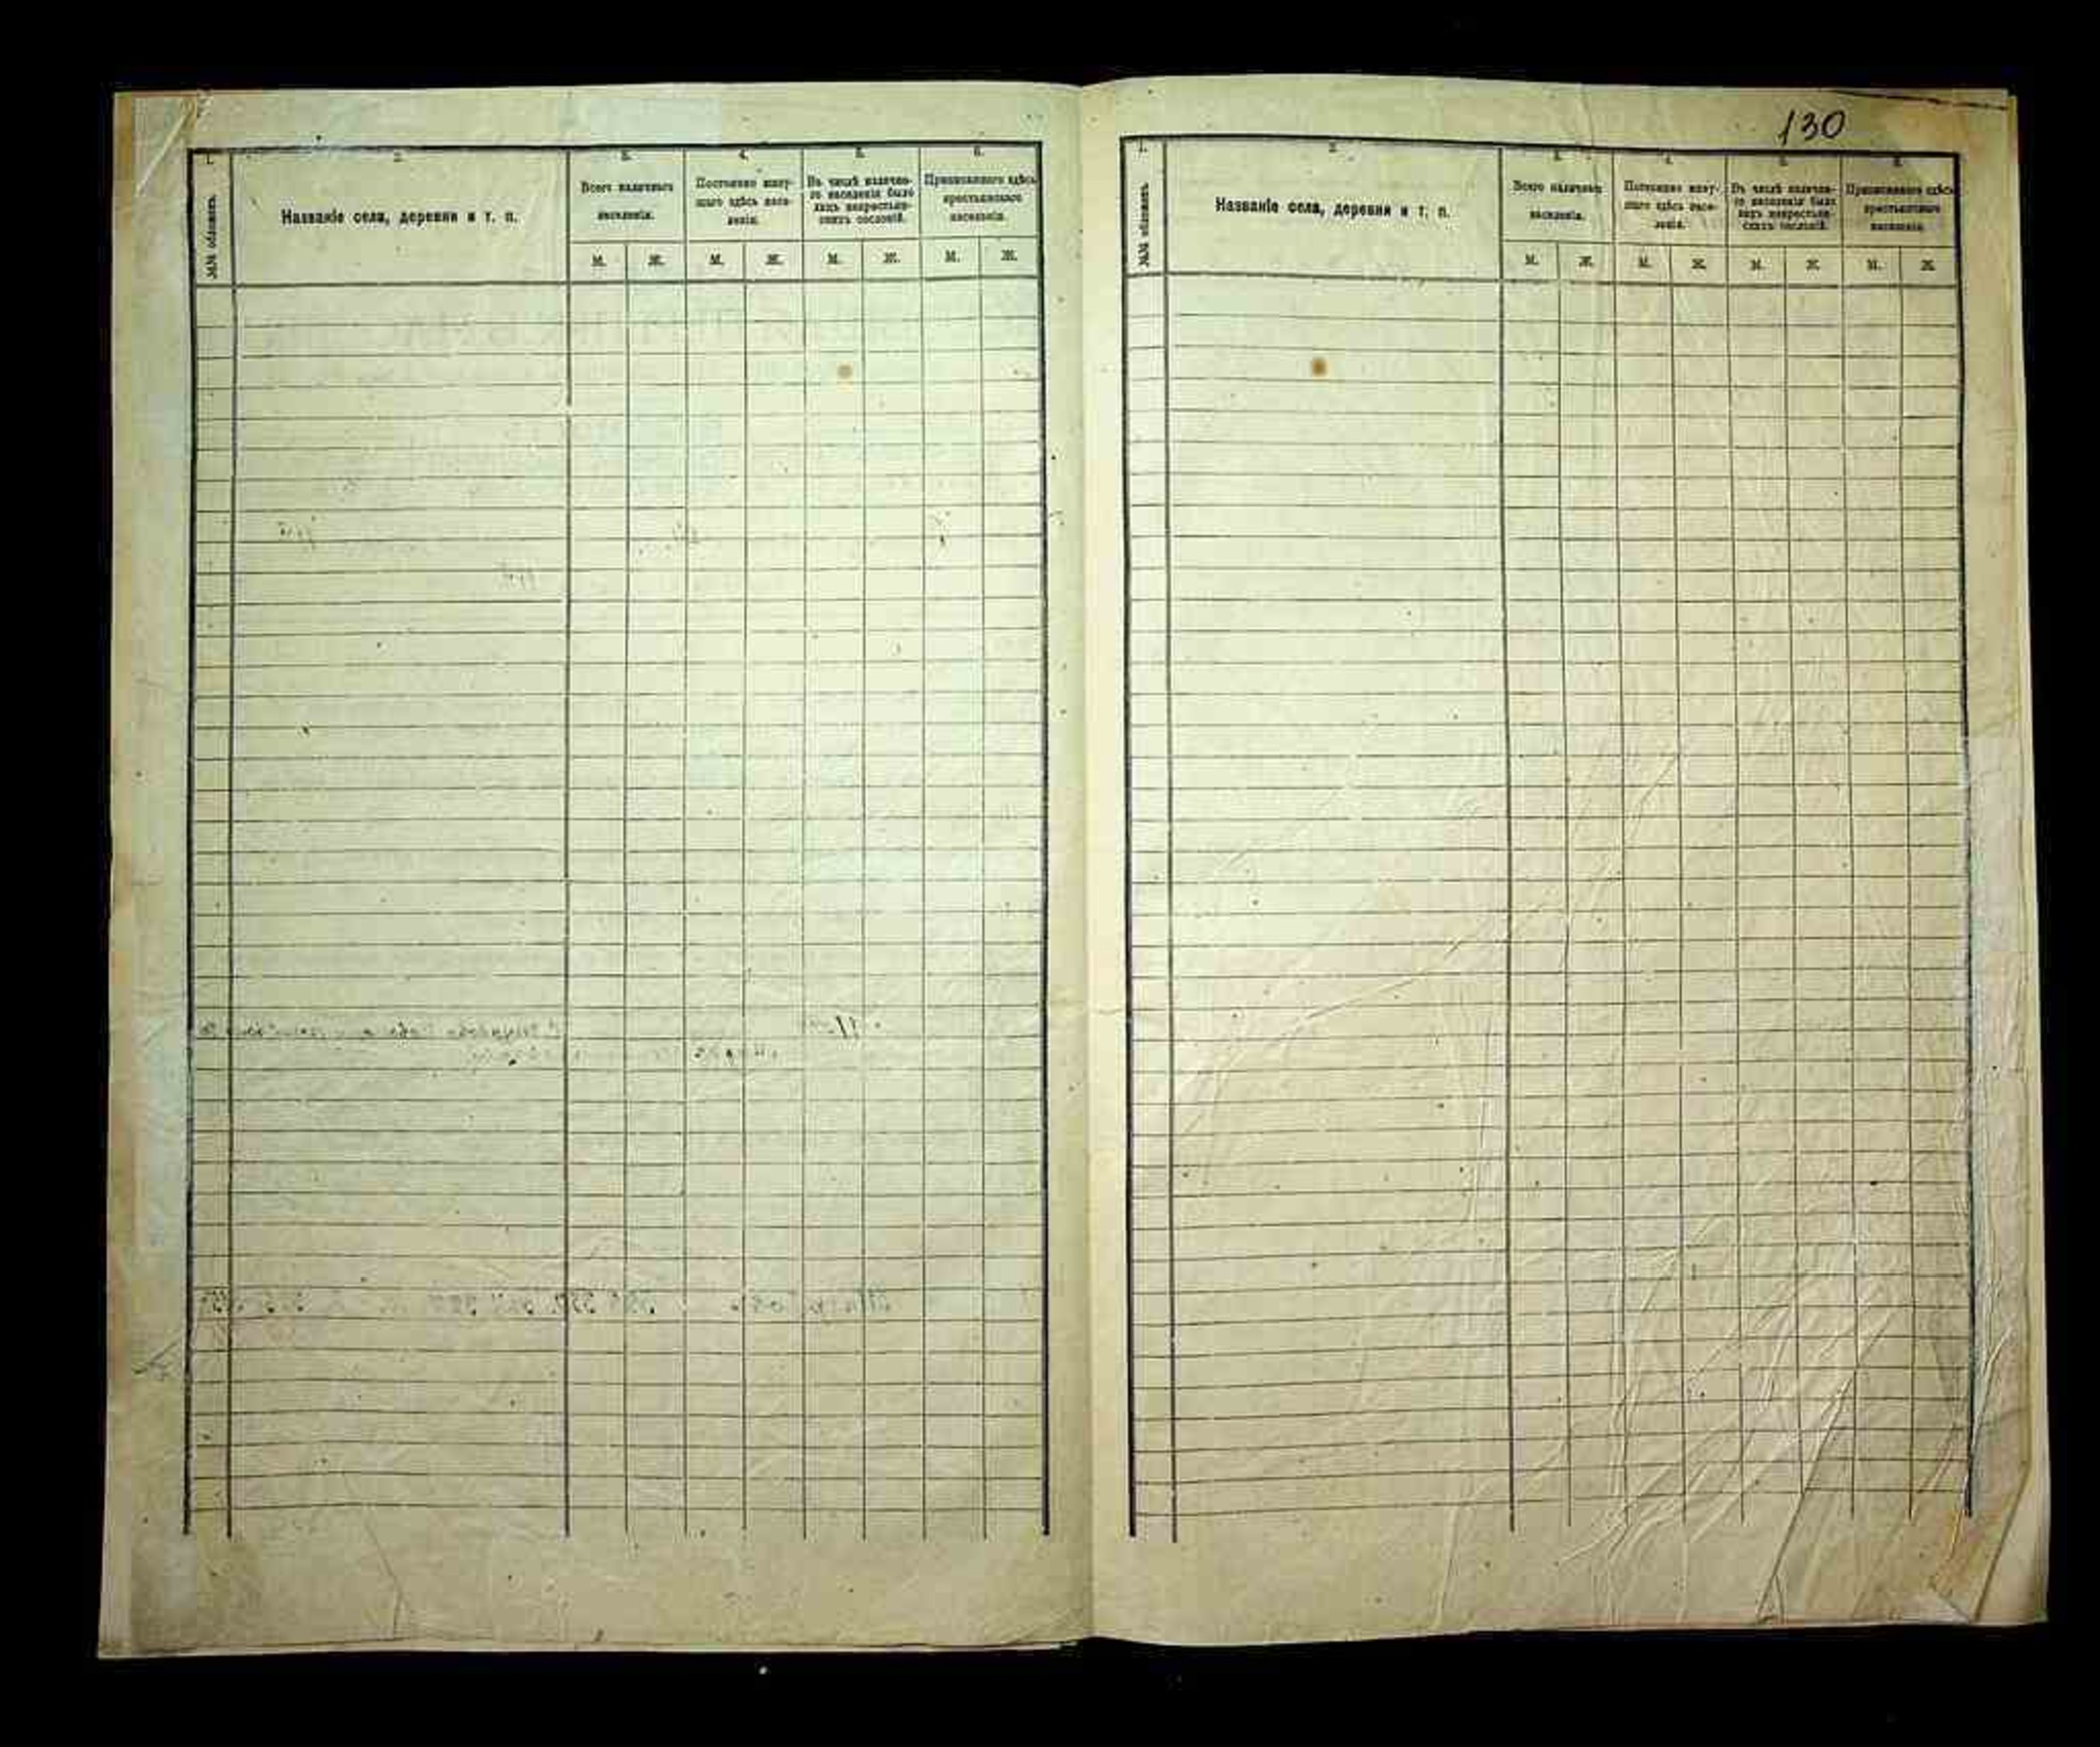 1. 2. 3. 4. 5. 6.
№№ обложекъ.
Названіе села, деревни и т. п.
Всего наличнаго населенія.
Постоянно живущаго здѣсь населенія.
Въ числѣ наличнаго населенія было лицъ некрестьянскихъ сословій.
Приписаннаго здѣсь крестьянскаго населенія.
М. Ж. М. Ж. М. Ж. М. Ж.
130
1. 2. 3. 4. 5. 6.
№№ обложекъ.
Названіе села, деревни и т. п.
Всего наличнаго населенія.
Постоянно живущаго здѣсь населенія.
Въ числѣ наличнаго населенія было лицъ некрестьянскихъ сословій.
Приписаннаго здѣсь крестьянскаго населенія.
М. Ж. М. Ж. М. Ж. М. Ж.